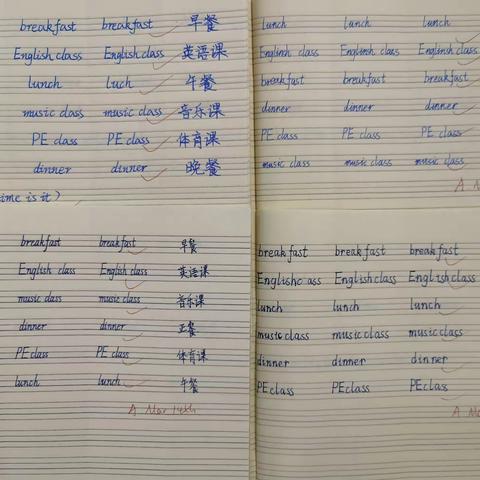 breakfast breakfast 早餐
English class English class 英语课
lunch luch 午餐
music class music class 音乐课
PE class PE class 体育课
dinner dinner 晚餐
ime is it)
lunch lunch lunch
English class English class English class
breakfast breakfast breakfast
dinner dinner dinner
PE class PE class PE class
music class music class music class
A Ma
breakfast breakfast 早餐
English class English class 英语课
music class music class 音乐课
dinner dinner 正餐
PE class PE class 体育课
lunch lunch 午餐
A Mar 14th
breakfast breakfast breakfast
Englishc ass English class English class
lunch lunch lunch
music class music class music class
dinner dinner dinner
PE class PE class PE clas
A Ma